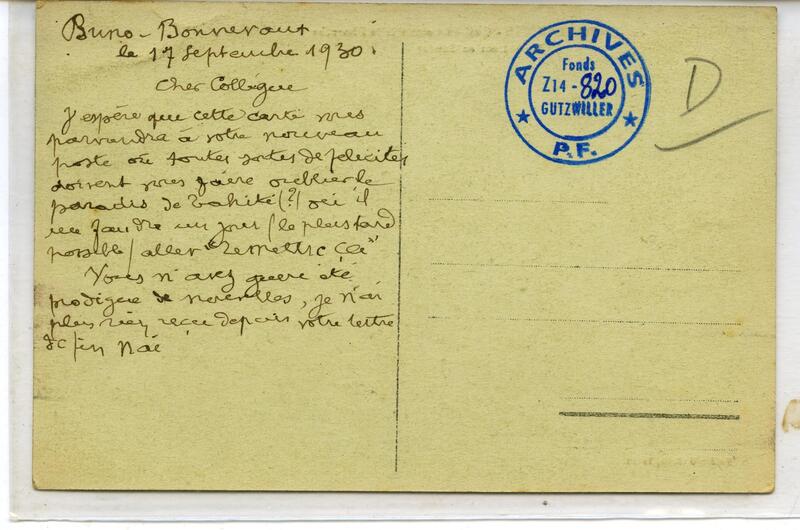 Buno-Bonnevaux
le 17 Septembre 1930.
Cher Collègue
J'espère que cette carte vous
parviendra à votre nouveau
poste où toutes sortes de félicités
doivent vous faire oublier le
paradis de Tahiti (?) où il
me faudra un jour (le plus tard
possible) aller "remettre ça"
Vous n'avez guère été
prodigue de nouvelles, je n'ai
plus rien reçu depuis votre lettre
de fin Mai
ARCHIVES
Fonds
Z14-820
GUTZWILLER
P.F.
D